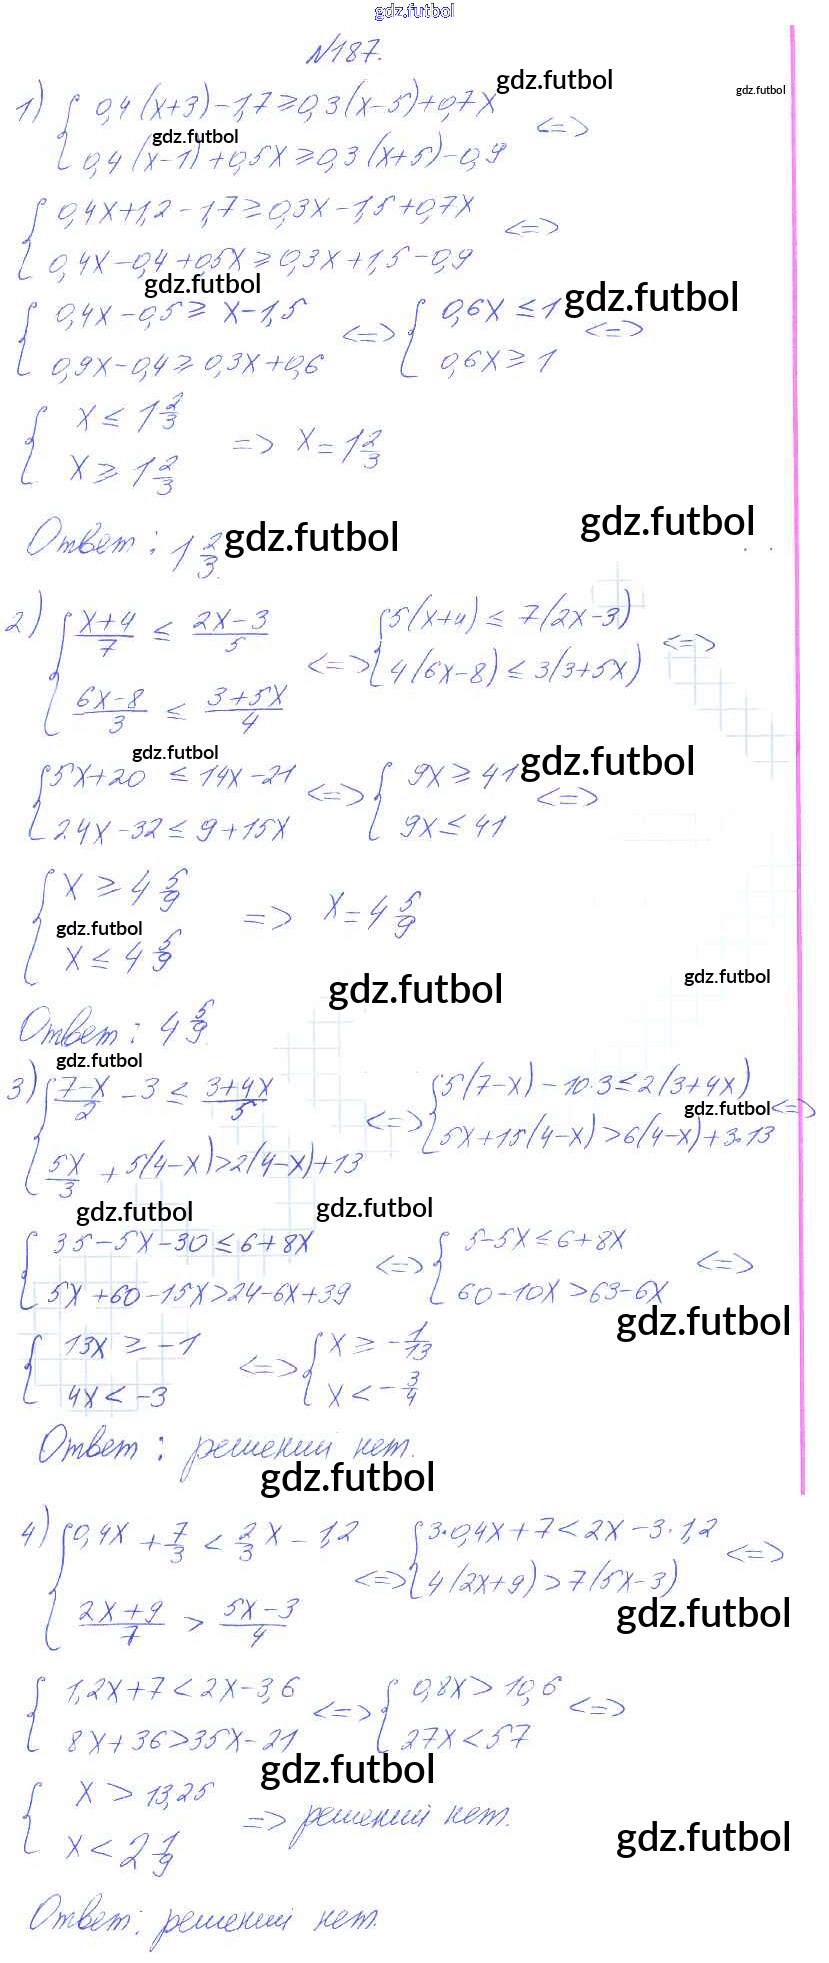 gdz.futbol
№187.
gdz.futbol
gdz.futbol
1) { 0,4(x+3)-1,7≥0,3(x-5)+0,7x
gdz.futbol
0,4(x-1)+0,5x≥0,3(x+5)-0,9 <=>
{ 0,4x+1,2-1,7≥0,3x-1,5+0,7x
0,4x-0,4+0,5x≥0,3x+1,5-0,9 <=>
gdz.futbol
gdz.futbol
{ 0,4x-0,5≥x-1,5
0,9x-0,4≥0,3x+0,6 <=> { 0,6x≤1
0,6x≥1 <=>
{ x≤1 2/3
x≥1 2/3 => x=1 2/3
gdz.futbol
Ответ: 1 2/3.
gdz.futbol
2) { (x+4)/7 ≤ (2x-3)/5
(6x-8)/3 ≤ (3+5x)/4 <=> { 5(x+4)≤7(2x-3)
4(6x-8)≤3(3+5x) <=>
gdz.futbol
gdz.futbol
{ 5x+20≤14x-21
24x-32≤9+15x <=> { 9x≥41
9x≤41 <=>
{ x≥4 5/9
gdz.futbol
x≤4 5/9 => x=4 5/9
gdz.futbol
gdz.futbol
Ответ: 4 5/9.
gdz.futbol
3) { (7-x)/2 -3≤ (3+4x)/5
5x/3 +5(4-x)>2(4-x)+13 <=> { 5(7-x)-10·3≤2(3+4x)
gdz.futbol
5x+15(4-x)>6(4-x)+3·13 <=>
gdz.futbol
gdz.futbol
{ 35-5x-30≤6+8x
5x+60-15x>24-6x+39 <=> { 5-5x≤6+8x
60-10x>63-6x <=>
gdz.futbol
{ 13x≥-1
4x<-3 <=> { x≥-1/13
x<-3/4
Ответ: решений нет.
gdz.futbol
4) { 0,4x+7/3<2/3x-1,2
(2x+9)/7 > (5x-3)/4 <=> { 3·0,4x+7<2x-3·1,2
4(2x+9)>7(5x-3) <=>
gdz.futbol
{ 1,2x+7<2x-3,6
8x+36>35x-21 <=> { 0,8x>10,6
27x<57 <=>
gdz.futbol
{ x>13,25
x<2 1/9 => решений нет.
gdz.futbol
Ответ: решений нет.
gdz.futbol